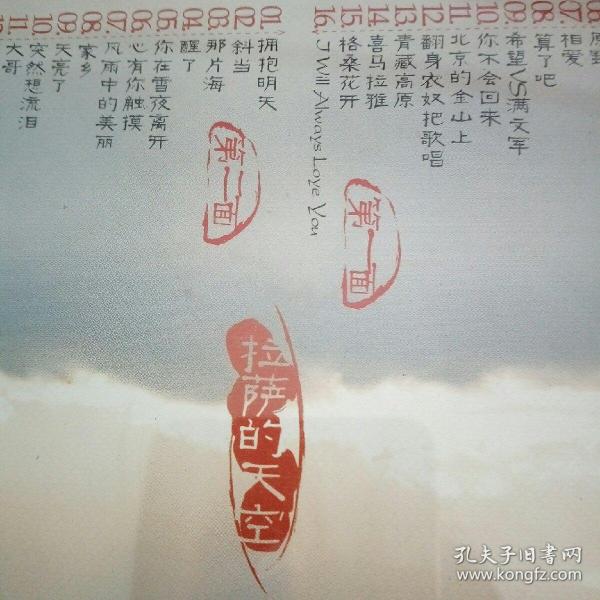 原野
07. 相爱
08. 算了吧
09. 希望VS满文军
10. 你不会回来
11. 北京的金山上
12. 翻身农奴把歌唱
13. 青藏高原
14. 喜马拉雅
15. 格桑花开
16. I Will Always Love You
第一面
01. 拥抱明天
02. 斜当
03. 那片海
04. 醒了
05. 你在雪夜离开
06. 心有你触摸
07. 风雨中的美丽
08. 家乡
09. 天亮了
10. 突然想流泪
11. 大哥
第二面
拉萨的天空
孔夫子旧书网
www.kongfz.com